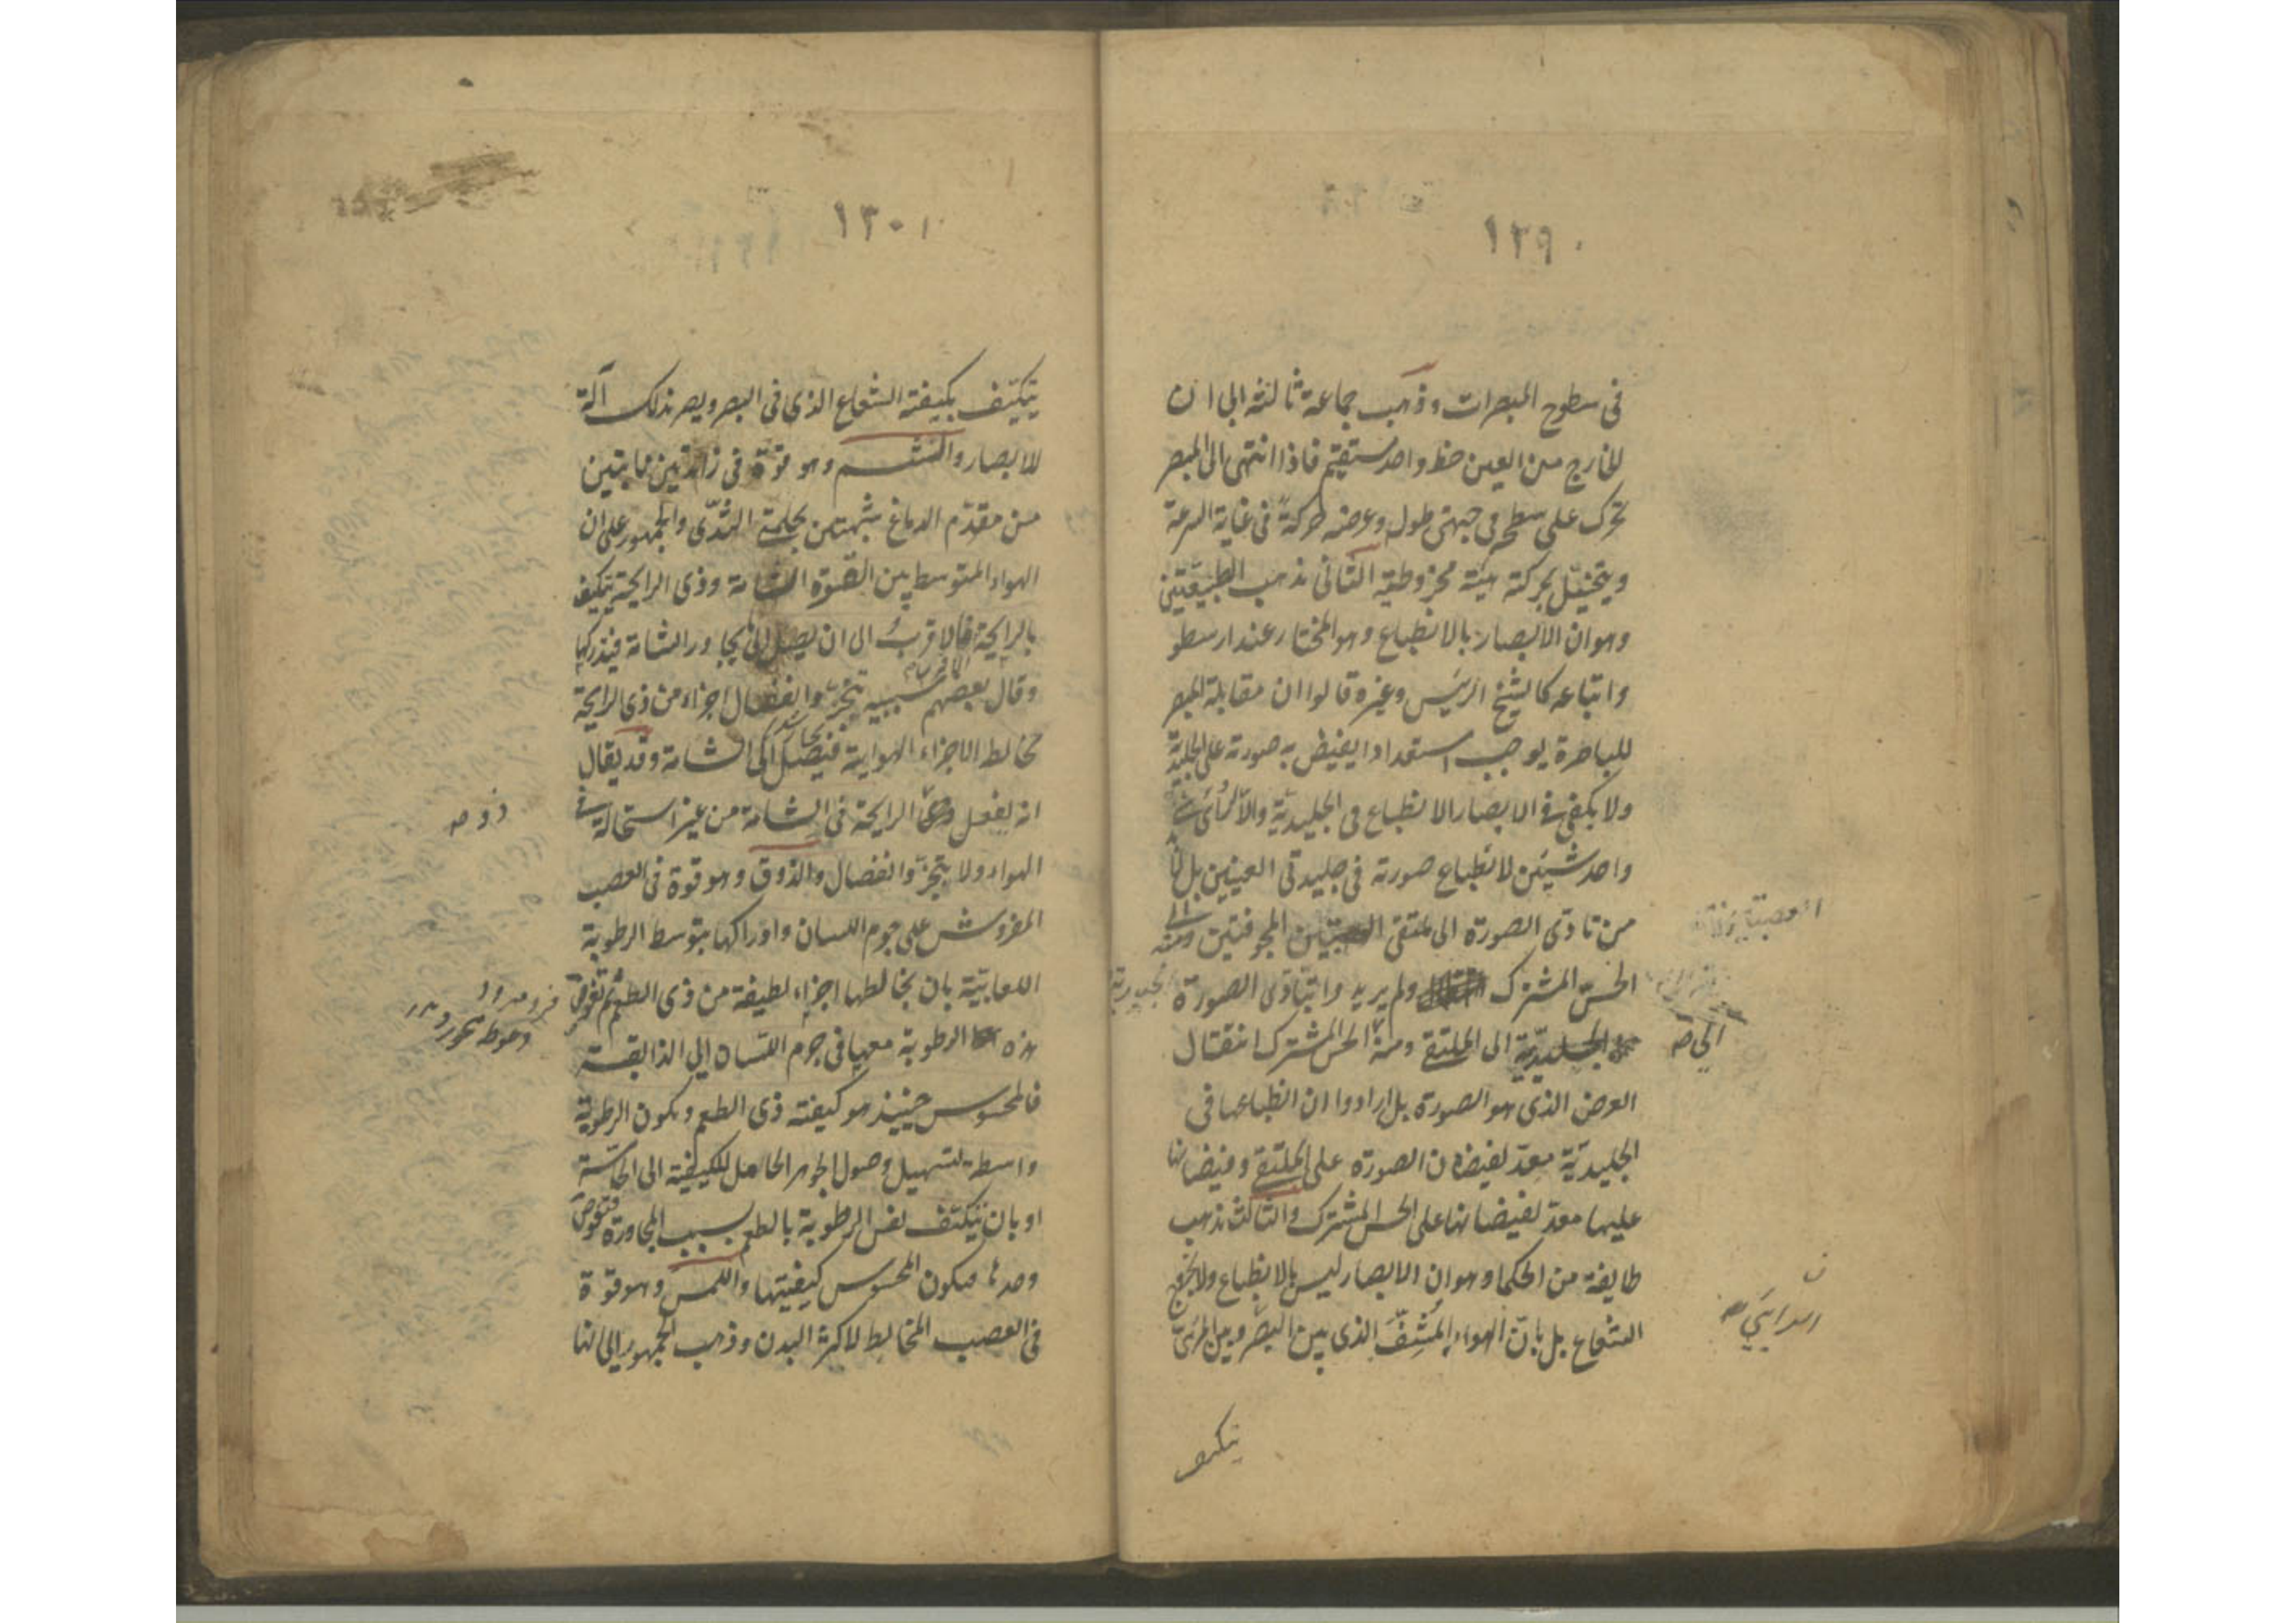 ١٢٩
في سطوح المبصرات وذهب جماعة ثالثة الى ان
الخارج من العين خط واحد مستقيم فاذا انتهى الى المبصر
تحرك على سطحه في جهتي طوله وعرضه حركةً في غاية السرعة
ويتخيل بحركته هيئة مخروطية الثاني مذهب الطبيعيين
وهو ان الابصار بالانطباع وهو المختار عند ارسطو
واتباعه كالشيخ الرئيس وغيره قالوا ان مقابلة المبصر
للباصرة يوجب استعدادا يفيض به صورته على الجليدية
ولا يكفي في الابصار الانطباع في الجليدية والا لرأى شئ
واحد شيئين لانطباع صورته في جليدتي العينين بل لا بد
من تادى الصورة الى ملتقى المجوفتين ومنه الى
الحس المشترك ولم يريدوا بتادى الصورة
الجليدية الى الملتقى ومنه الحس المشترك انتقال
الى صح
العرض الذى هو الصورة بل ارادوا ان انطباعها في
الجليدية معدّ لفيضان الصورة على الملتقى وفيضانها
عليها معدّ لفيضانها على الحس المشترك والثالث مذهب
طايفة من الحكماء وهو ان الابصار ليس بالانطباع ولا بخروج
الشعاع بل بانّ الهواء المُشِفّ الذى بين البصر وبين المرئى
يتكيف
١٣٠
يتكيّف بكيفية الشعاع الذى في البصر ويصير بذلك آلة
للابصار والشم وهو قوّة في زائدتين نابتتين
من مقدّم الدماغ شبيهتين بحلمتي الثدى والجمهور على ان
الهواء المتوسط بين القوّة الشامة وذى الرايحة يتكيف
بالرايحة فالاقربُ الى ان يصل الى ما يجاور الشامة فيدركها
وقال بعضهم سببه تبخر وانفصال اجزاء من ذى الرايحة
تخالط الاجزاء الهوايية فيصل الى الشامة وقد يقال
انه يفعل الرايحة في الشامة من غير استحالة في
ذو صح
الهواء ولا بتبخر وانفصال والذوق وهو قوة في العصب
المفروش على جرم اللسان وادراكها بتوسط الرطوبة
اللعابيّة بان يخالطها اجزاء لطيفة من ذى الطعم ثم تغوص
هذه الرطوبة معها في جرم اللسان الى الذايقة
فالمحسوس حينئذ هو كيفية ذى الطعم ويكون الرطوبة
واسطة لتسهيل وصول الجوهر الحامل للكيفية الى الحاسّة
او بان يتكيّف نفس الرطوبة بالطعم بسبب المجاورة فتغوص
وحدها فيكون المحسوس كيفيتها واللمس وهو قوة
في العصب المخالط لاكثر البدن وذهب الجمهور الى انها